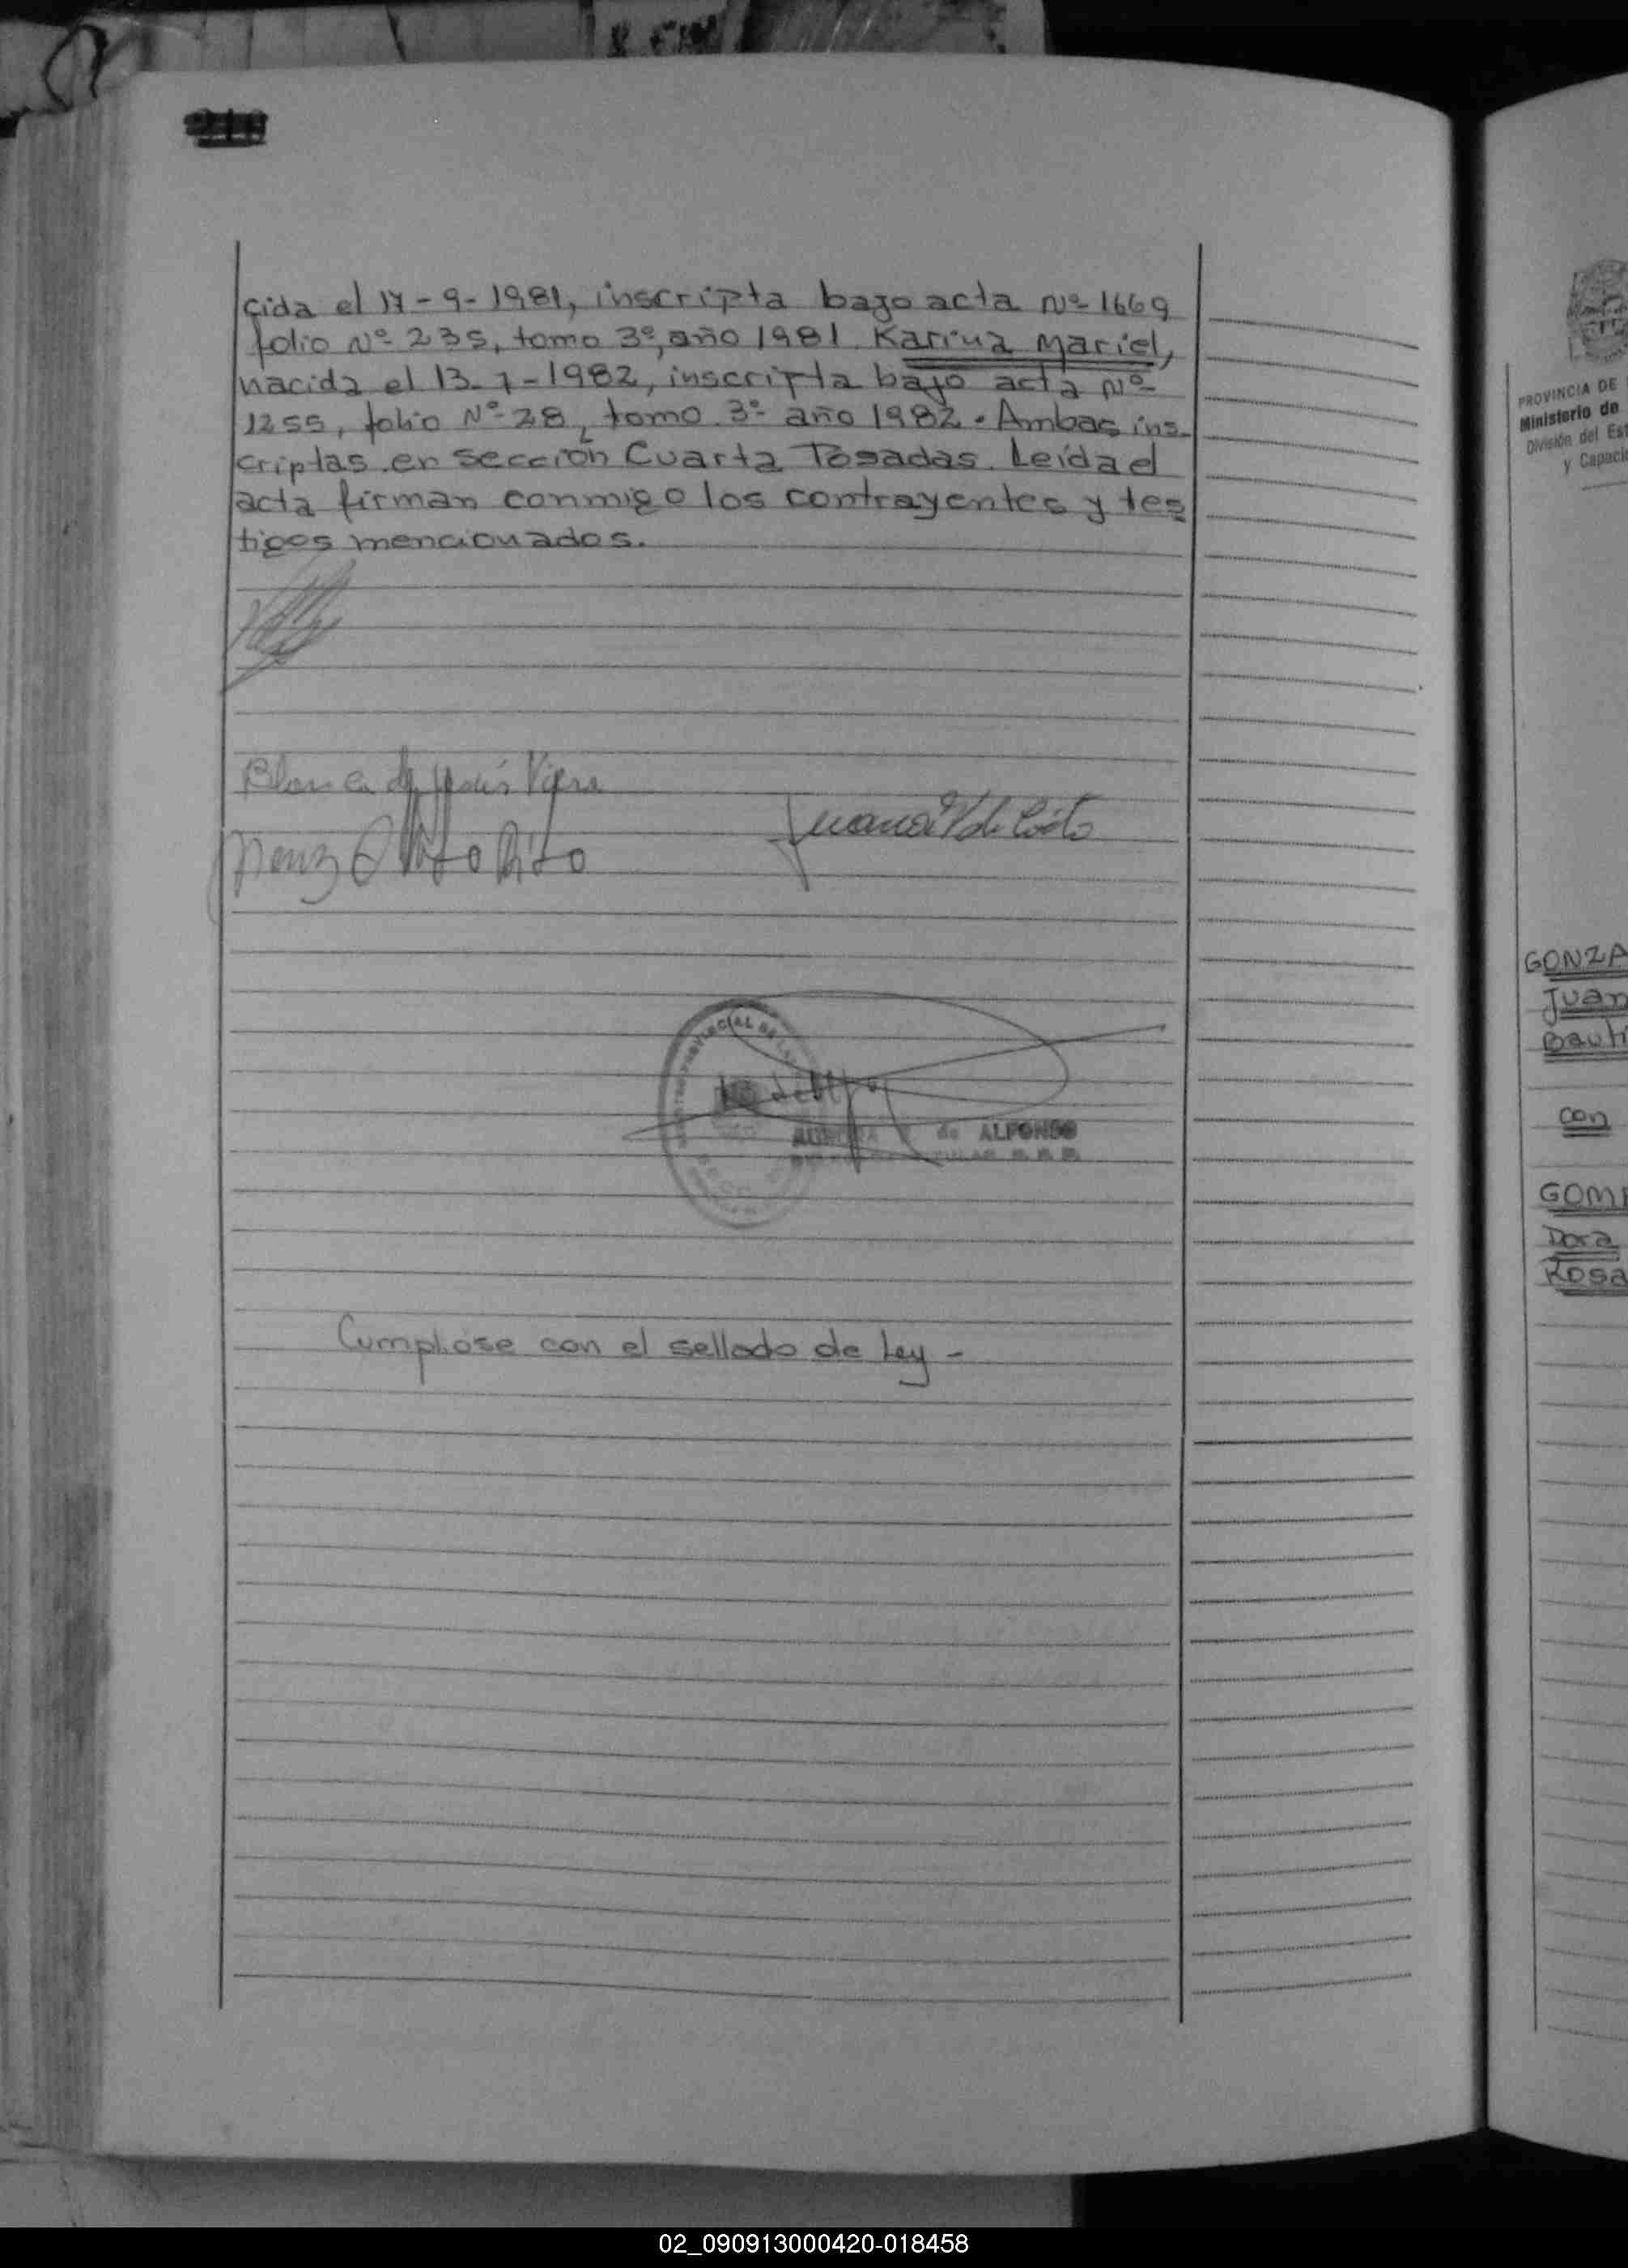 cida el 17-9-1981, inscripta bajo acta Nº 1669
folio Nº 235, tomo 3º, año 1981. Karina Mariel,
nacida el 13-7-1982, inscripta bajo acta Nº
1255, folio Nº 28, tomo 3º año 1982. Ambas ins-
criptas en sección Cuarta Posadas. Leída el
acta firman conmigo los contrayentes y tes
tigos mencionados.
Blanca de Jesús Viera
Juana V de
de ALFONSO
Cumplase con el sellado de Ley -
PROVINCIA DE
Ministerio de
División del Est
y Capaci
GONZA
Juan
Bauti
con
GOM
Dora
Rosa
02_090913000420-018458